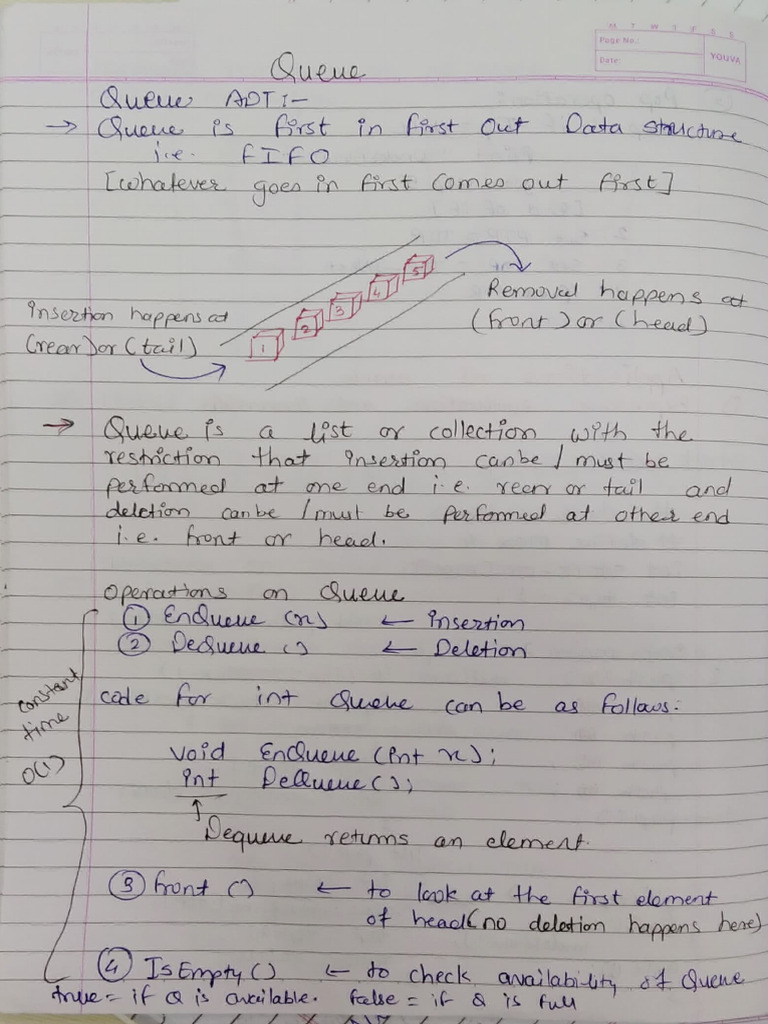 M T W T F S S
Page No.:
Date:
YOUVA
Queue
Queue ADT:-
→ Queue is first in first out Data structure
i.e. FIFO
[whatever goes in first comes out first]
1 2 3 4 5
Insertion happens at
(rear) or (tail)
Removal happens at
(front) or (head)
→ Queue is a list or collection with the
restriction that insertion can be / must be
performed at one end i.e. rear or tail and
deletion can be / must be performed at other end
i.e. front or head.
operations on Queue
① EnQueue (x) ← insertion
② DeQueue () ← Deletion
constant
time
O(1)
code for int Queue can be as follows:
void EnQueue (int x);
int DeQueue ();
↑
Dequeue returns an element.
③ front () ← to look at the first element
of head (no deletion happens here)
④ IsEmpty () ← to check availability of Queue
true = if Q is available. false = if Q is full